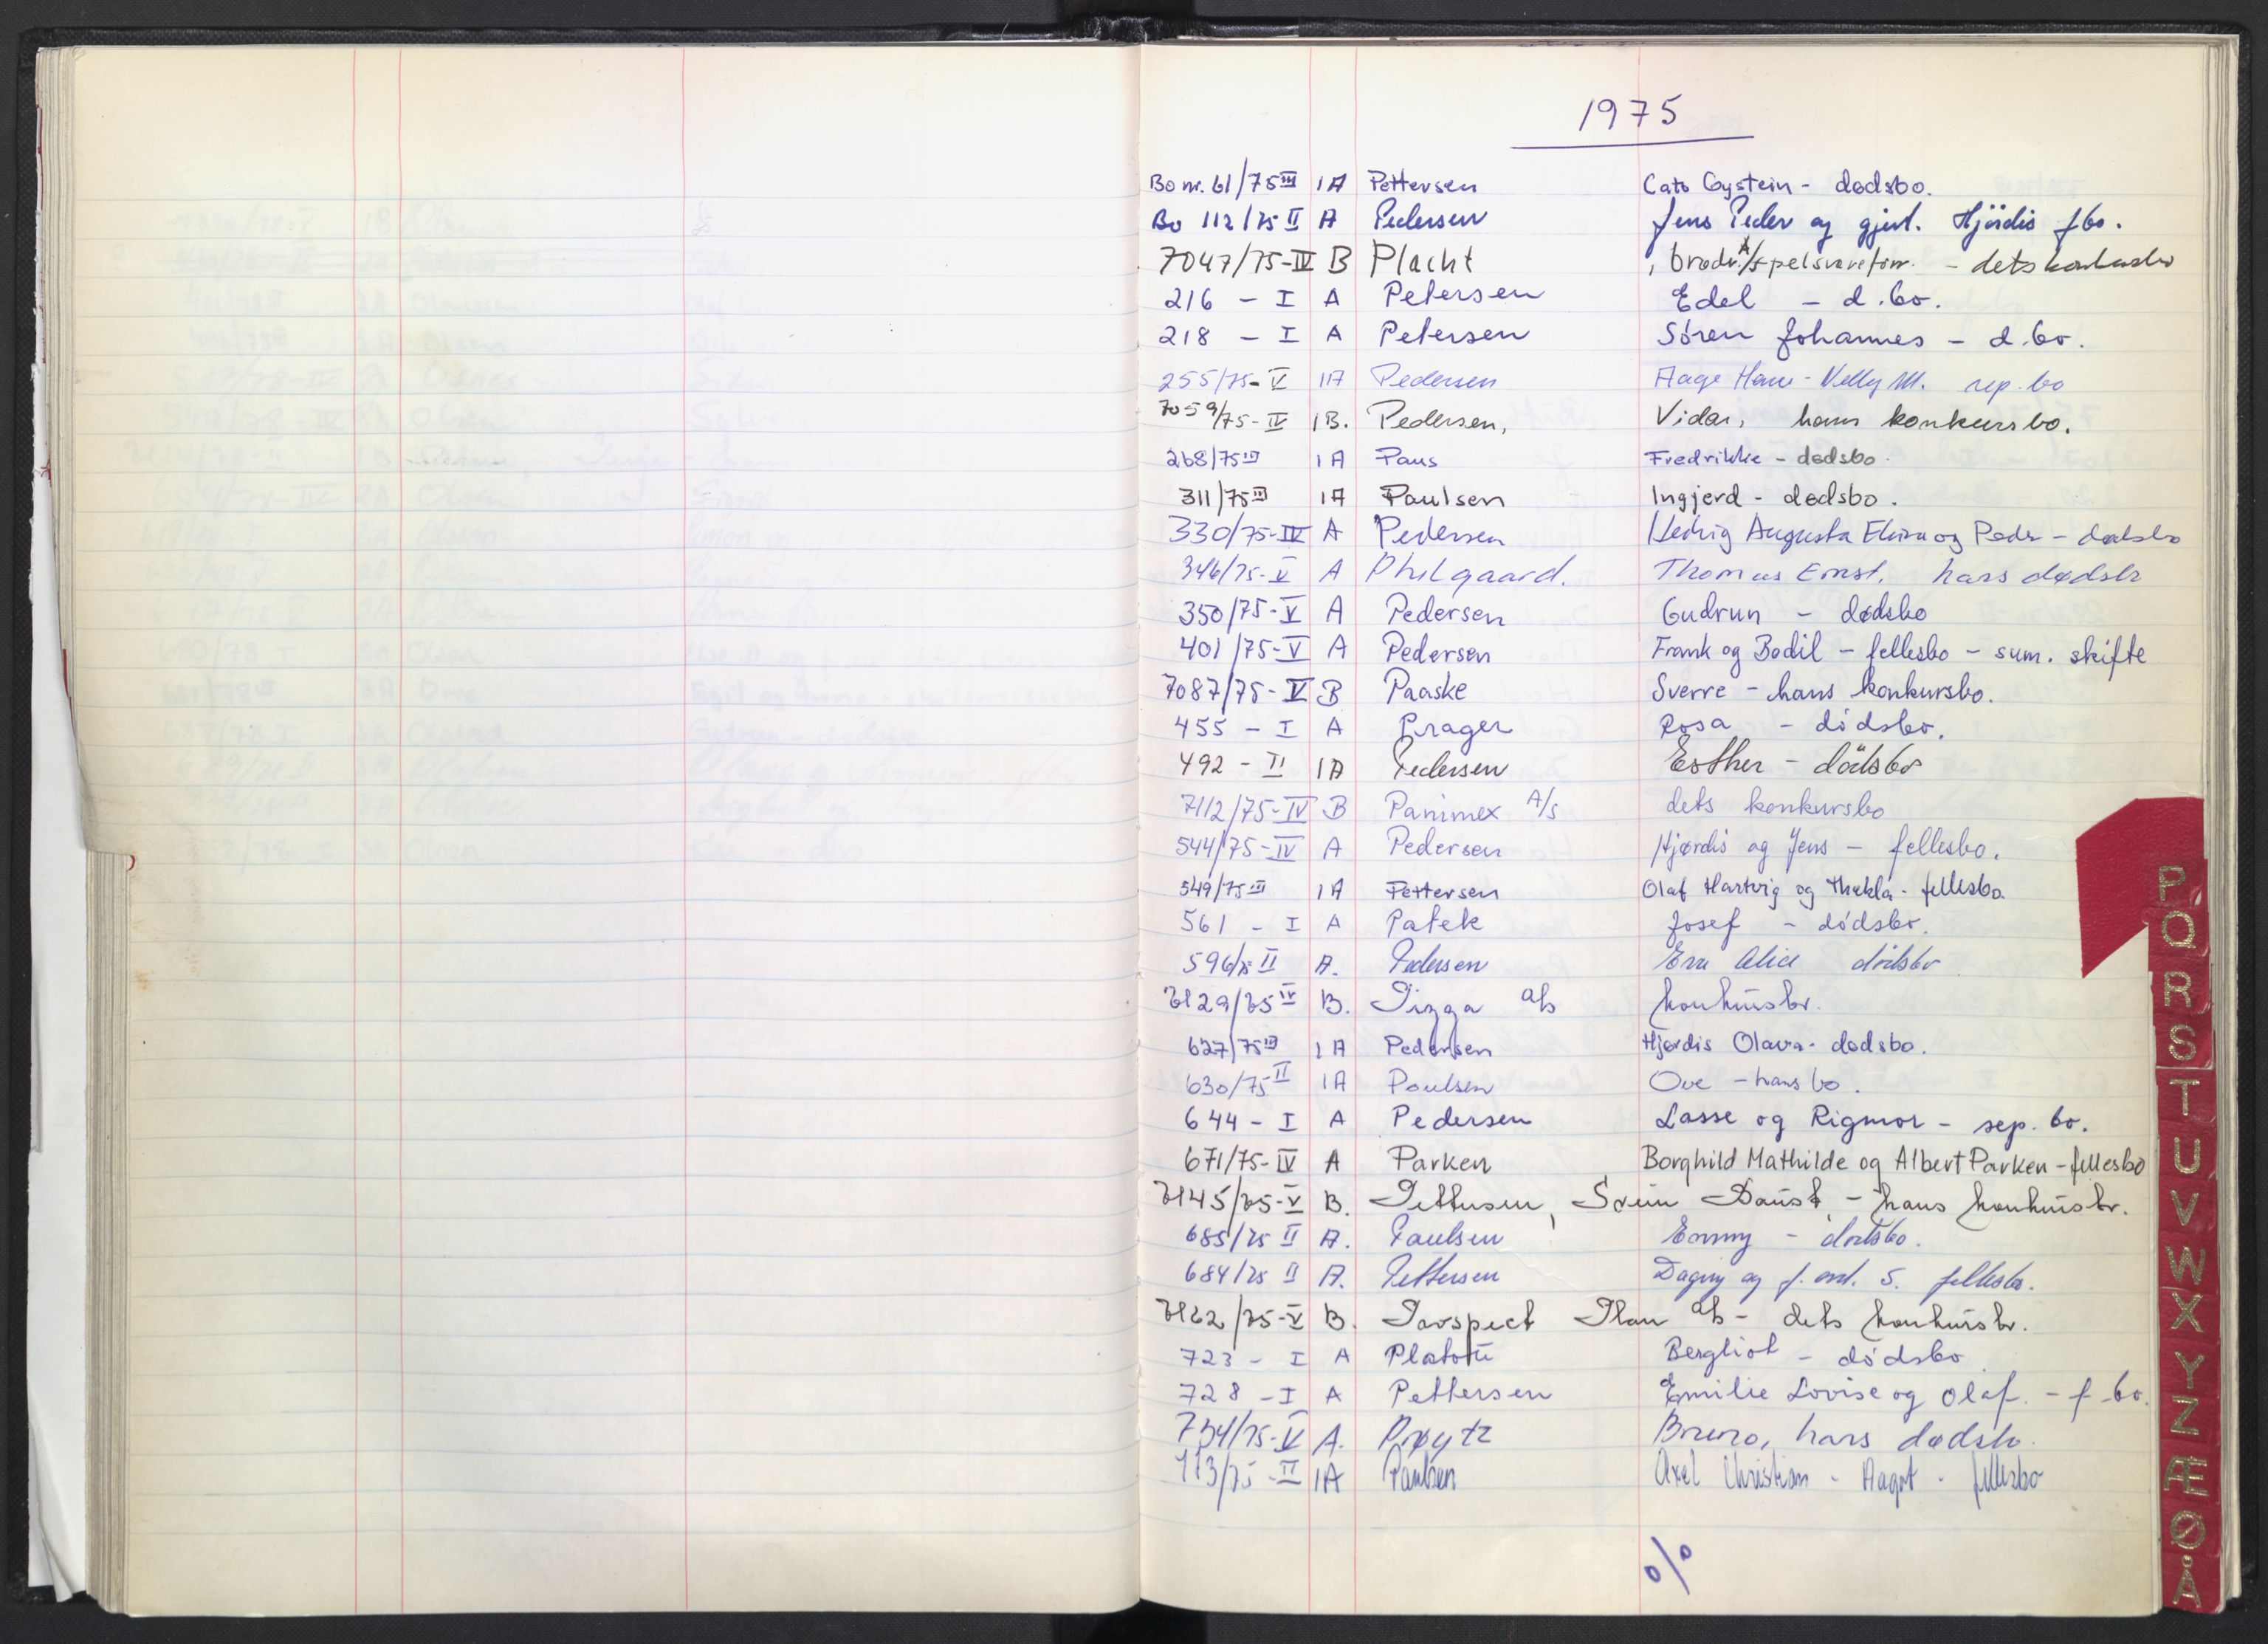 1975
Bo nr. 61/75 III 1A Pettersen Cato Øystein - dødsbo.
Bo 112/75 II A Pedersen Jens Peder og gjenl. Hjördis fbo.
7047/75-IV B Placht , brødr. A/S pelsvareforr. - dets konkursbo
216 - I A Petersen Edel - d.bo.
218 - I A Petersen Sören Johannes - d.bo.
255/75-V 1A Pedersen Aage Hans - Nelly M. sep. bo
7059/75-IV 1B. Pedersen, Vidar, hans konkursbo.
268/75 III 1A Paus Fredrikke - dødsbo.
311/75 III 1A Paulsen Ingjerd - dødsbo.
330/75-IV A Pedersen Hedvig Augusta Elvira og Peder - dødsbo
346/75-V A Philgaard. Thomas Ernst. hans dødsbo
350/75-V A Pedersen Gudrun - dødsbo
401/75-V A Pedersen Frank og Bodil - fellesbo - sum. skifte
7087/75-V B Paaske Sverre - hans konkursbo.
455 - I A Prager Rosa - dødsbo.
492 - II 1A Pedersen Esther - dödsbo
7112/75-IV B Panimex A/S dets konkursbo
544/75-IV A Pedersen Hjørdis og Jens - fellesbo.
549/75 III 1A Pettersen Olaf Hartvig og Thekla - fellesbo.
561 - I A Patek Josef - dødsbo.
596/75 II A. Pedersen Eva Alice dödsbo
7129/75 IV B. Pizza A/S konkursbo.
627/75 III 1A Pedersen Hjørdis Olava - dødsbo.
630/75 II 1A Poulsen Ove - hans bo.
644 - I A Pedersen Lasse og Rigmor - sep. bo.
671/75-IV A Parken Borghild Mathilde og Albert Parken - fellesbo
7145/75-V B. Pettersen, Svein - hans konkursbo.
685/75 II A. Paulsen Emmy - dødsbo.
684/75 II A. Pettersen Dagny og f. avd. S. fellesbo.
7162/75-V B. Prospect Plan A/S - dets konkursbo.
723 - I A Platou Bergliot - dødsbo.
728 - I A Pettersen Emilie Lovise og Olaf. - f.bo.
734/75-V A. Prøytz Bruno, hans dødsbo.
113/75-II 1A Paulsen Axel Christian - Aagot - fellesbo
o/o
P
Q
R
S
T
U
V
W
X
Y
Z
Æ
Ø
Å